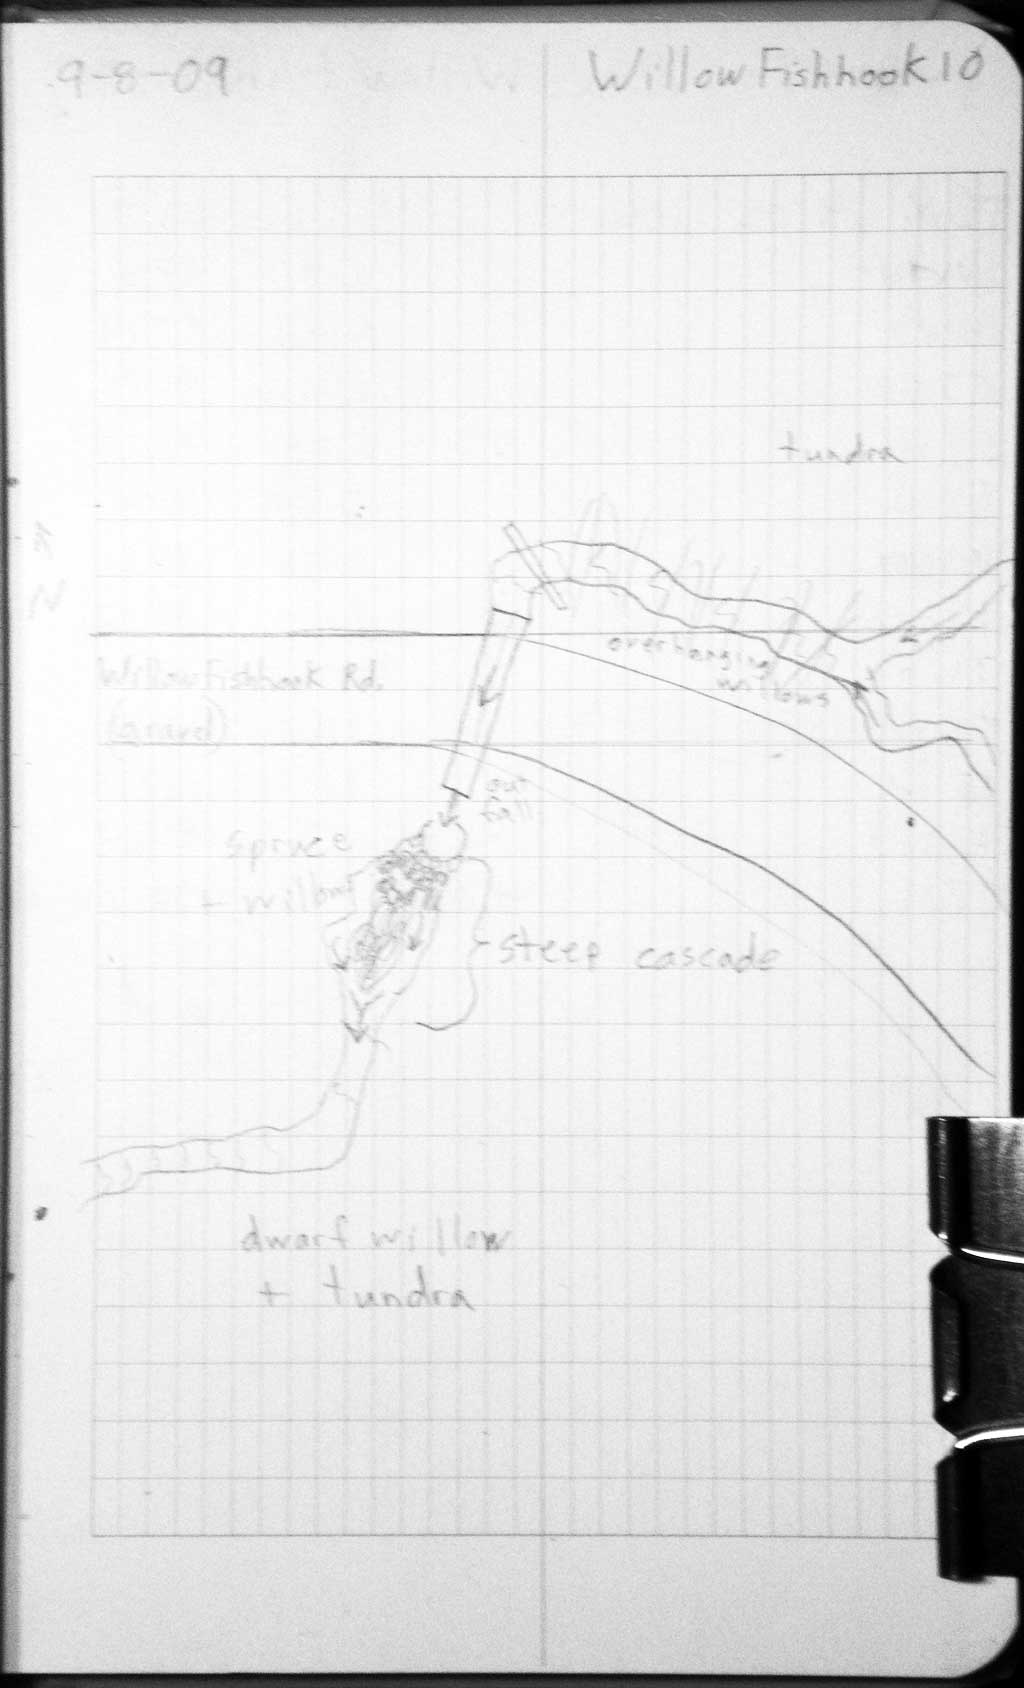 9-8-09
Willow Fishhook 10
tundra
overhanging
willows
Willow Fishhook Rd.
(Gravel)
out
fall
spruce
+ willow
steep cascade
dwarf willow
+ tundra